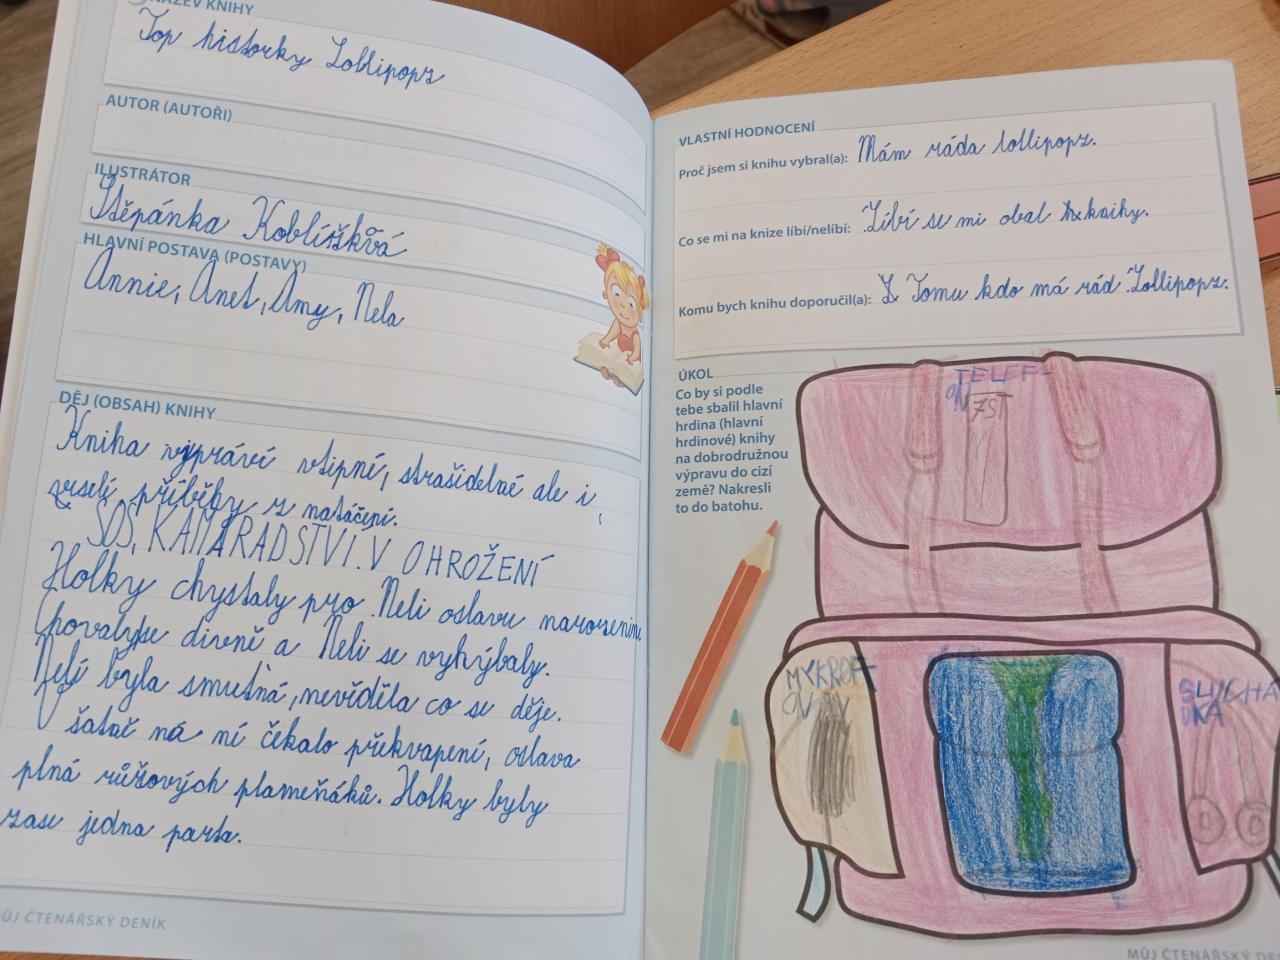 NÁZEV KNIHY
Top historky Lollipopz
AUTOR (AUTOŘI)
ILUSTRÁTOR
Štěpánka Koblížková
HLAVNÍ POSTAVA (POSTAVY)
Annie, Anet, Amy, Nela
DĚJ (OBSAH) KNIHY
Kniha vypráví vtipné, strašidelné ale i
veselé příběhy z natáčení.
SOS, KAMARADSTVI.V OHROŽENÍ
Holky chystaly pro Neli oslavu narozenin.
Chovaly se divně a Neli se vyhýbaly.
Nelí byla smutná, nevěděla co se děje.
na ní čekalo překvapení, oslava
plná růžových plameňáků. Holky byly
zase jedna parta.
MŮJ ČTENÁŘSKÝ DENÍK
VLASTNÍ HODNOCENÍ
Proč jsem si knihu vybral(a): Mám ráda lollipopz.
Co se mi na knize líbí/nelíbí: Líbí se mi obal knihy.
Komu bych knihu doporučil(a): Tomu kdo má rád Lollipopz.
ÚKOL
Co by si podle
tebe sbalil hlavní
hrdina (hlavní
hrdinové) knihy
na dobrodružnou
výpravu do cizí
země? Nakresli
to do batohu.
TELEF-
ON
MYKROFT
ON
SLUCHÁ
DKA
MŮJ ČTENÁŘSKÝ DE